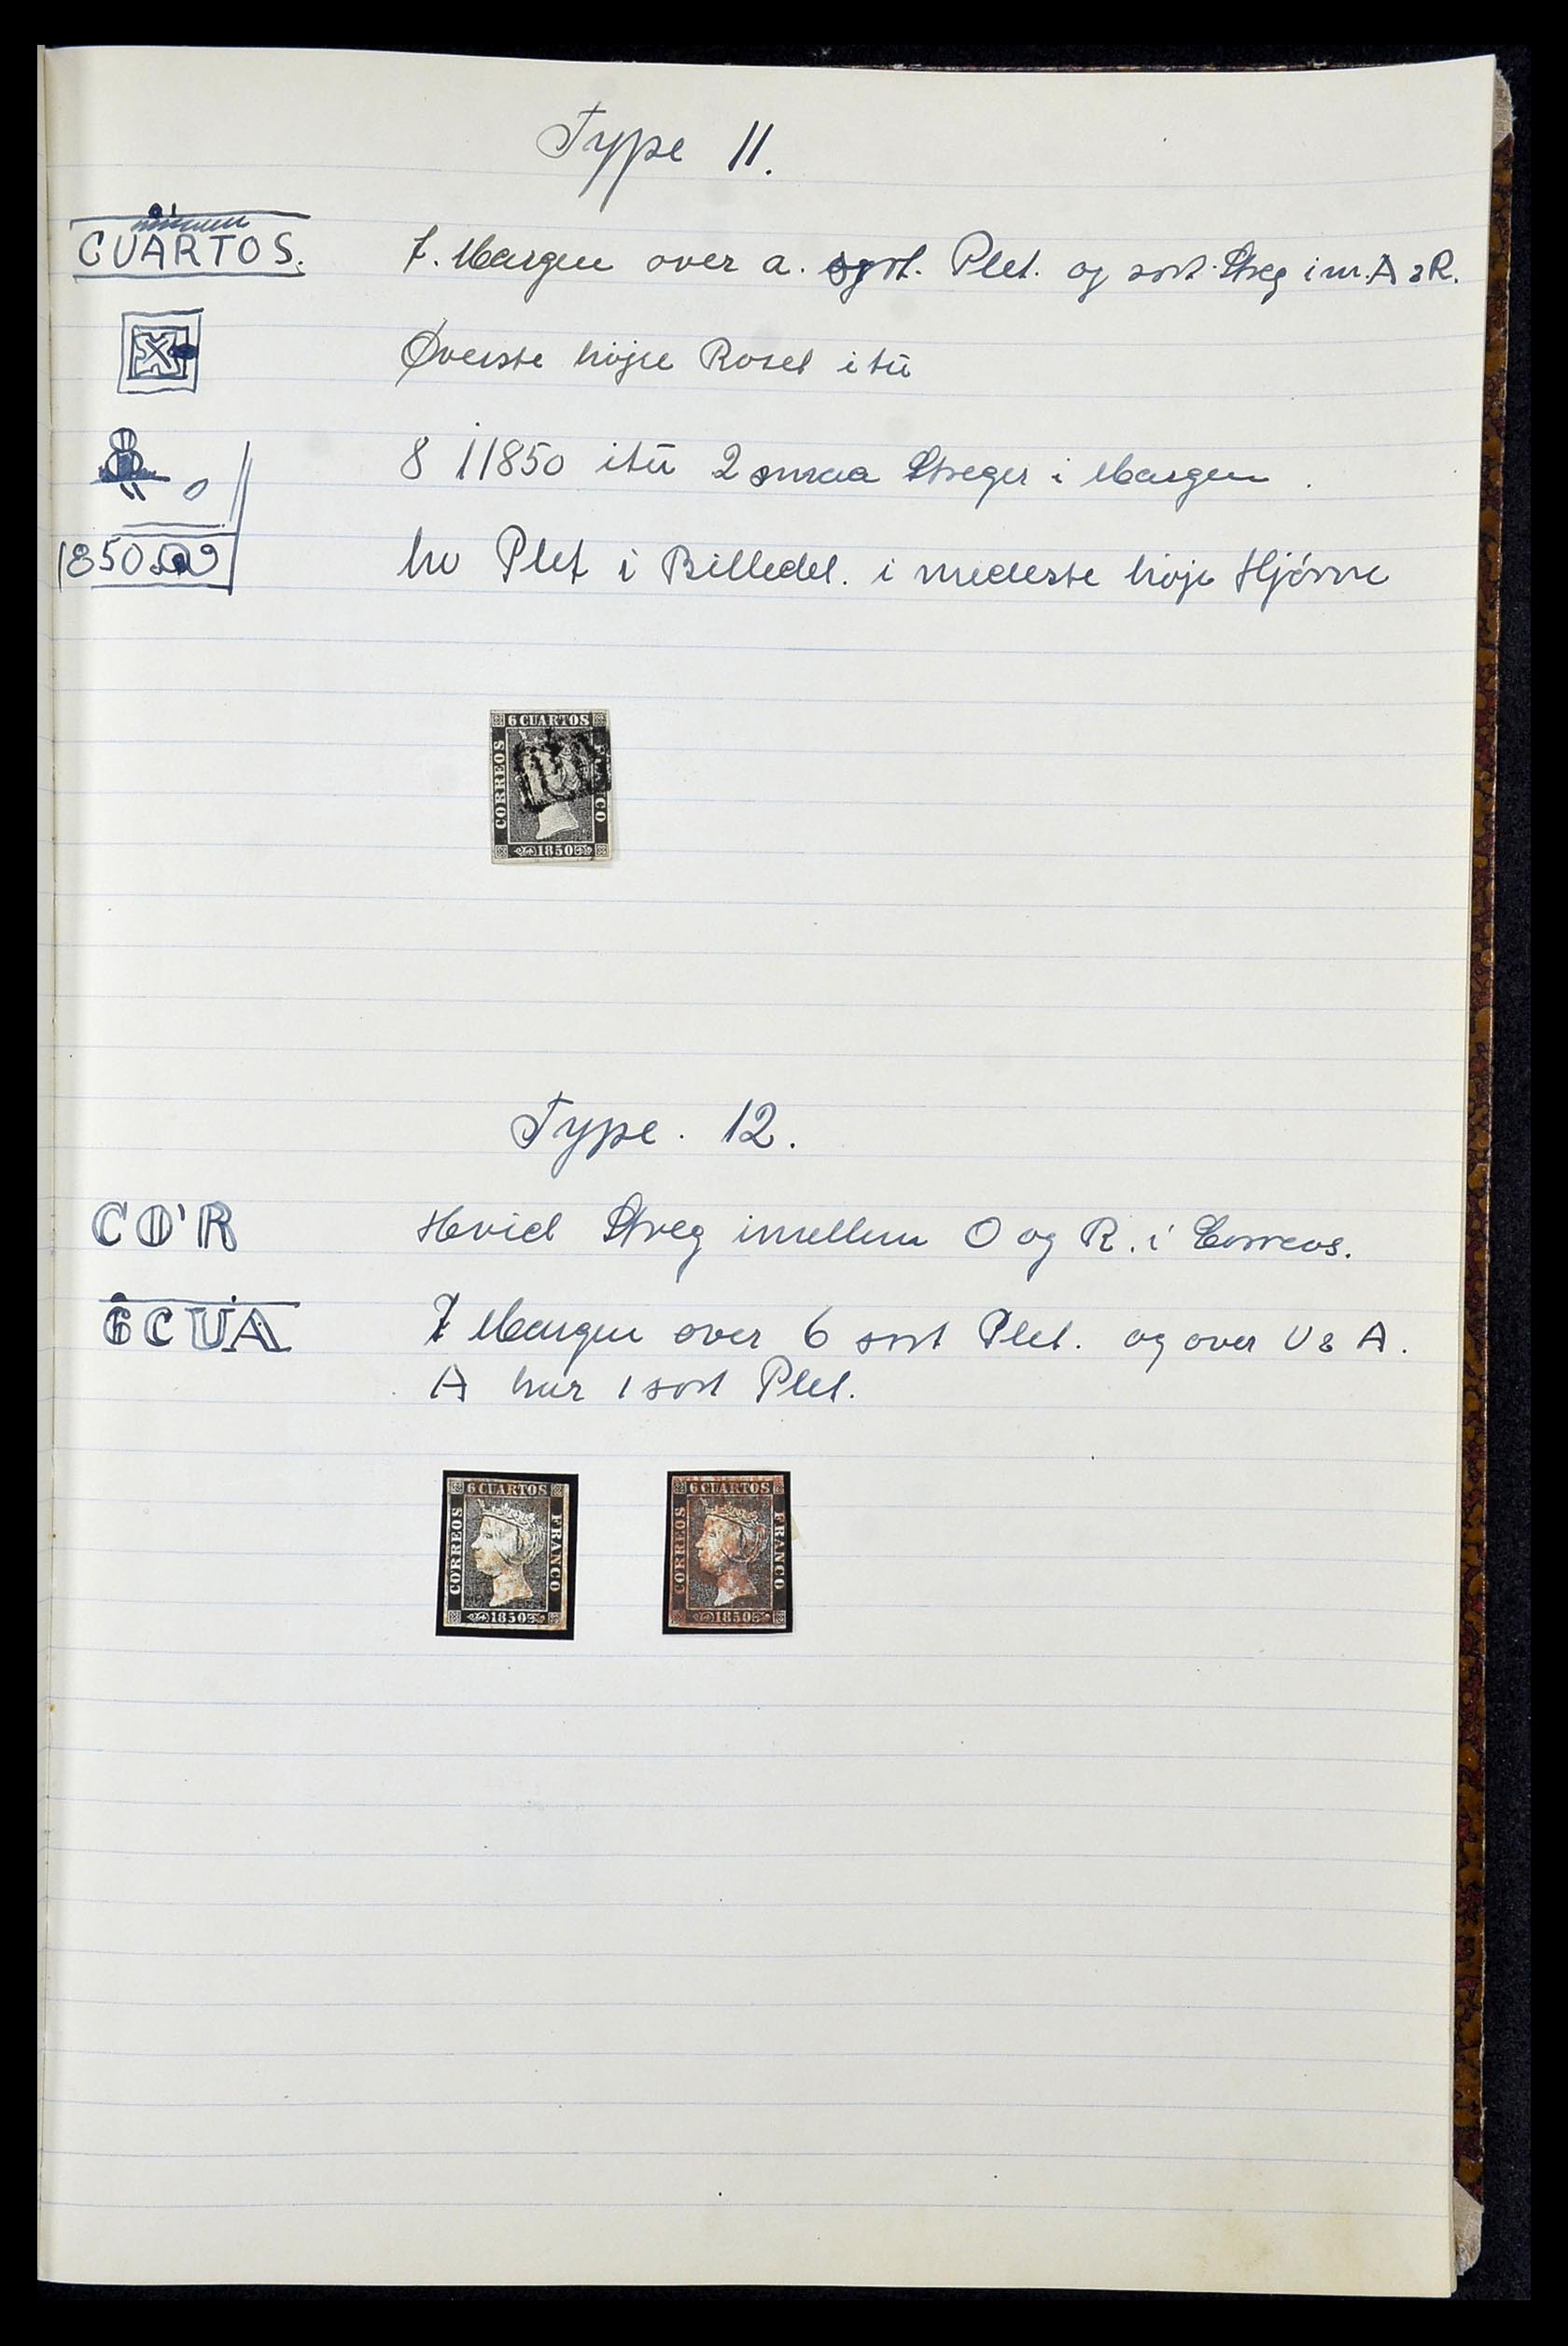 Type 11.
CUARTOS.
I. Margen over a. sort. Plet. og sort. Streg i m. A & R.
Øverste højre Roset itü
8 i 1850 itü 2 smaa Streger i Margen.
1850
hv Plet i Billedet. i nederste høje Hjörne
6 CUARTOS
CORREOS
FRANCO
1850
Type. 12.
CO'R
Hvid Streg imellem O og R. i Correos.
6CUA
I Margen over 6 sort Plet. og over U & A.
A har 1 sort Plet.
6 CUARTOS
CORREOS
FRANCO
1850
6 CUARTOS
CORREOS
FRANCO
1850